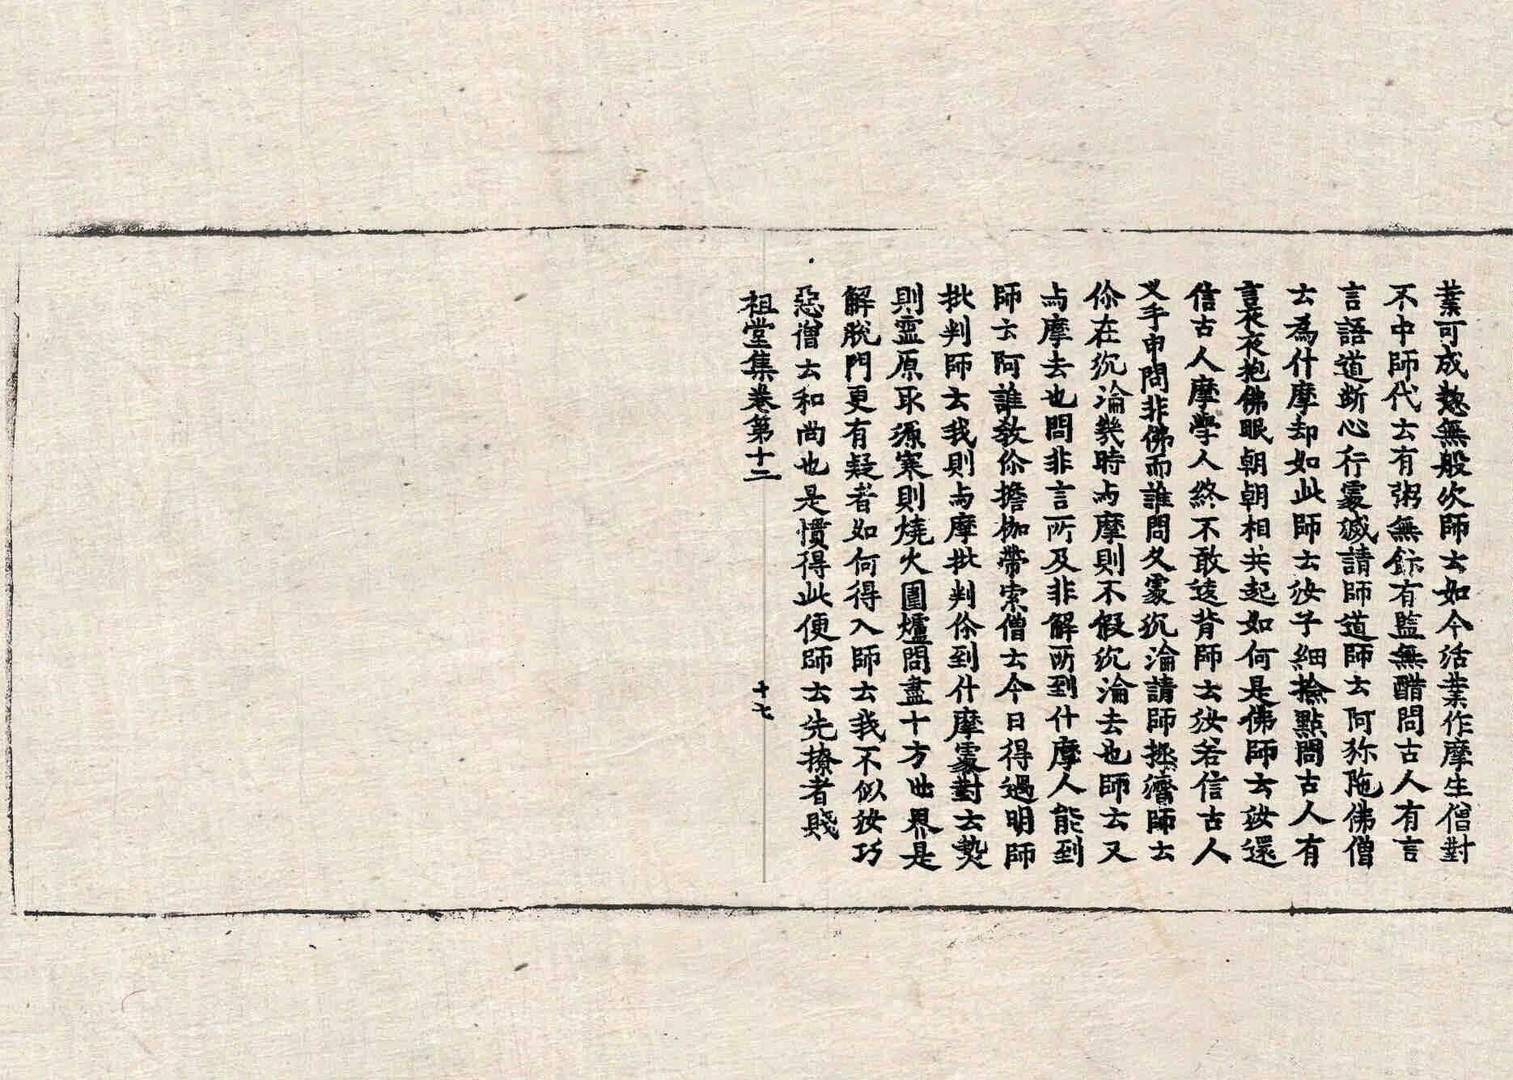 業可成麨無般次師云如今活業作摩生僧對
不中師代云有粥無飰有監無醋問古人有言
言語道断心行䖏滅請師道師云阿弥陁佛僧
云為什摩却如此師云汝子細撿點問古人有
言夜夜抱佛眠朝朝相共起如何是佛師云汝還
信古人摩學人終不敢違背師云汝若信古人
叉手申問非佛而誰問久䖏沉淪請師拯濟師云
你在沉淪幾時与摩則不假沉淪去也師云又
与摩去也問非言所及非解所到什摩人能到
師云阿誰教你擔枷帶索僧云今日得過明師
批判師云我則与摩批判你到什摩䖏對云熱
則靈原取源寒則燒火圍爐問盡十方世界是
解脫門更有疑者如何得入師云我不似汝巧
惡僧云和尚也是慣得此便師云先撩者賤
祖堂集卷第十二
十七